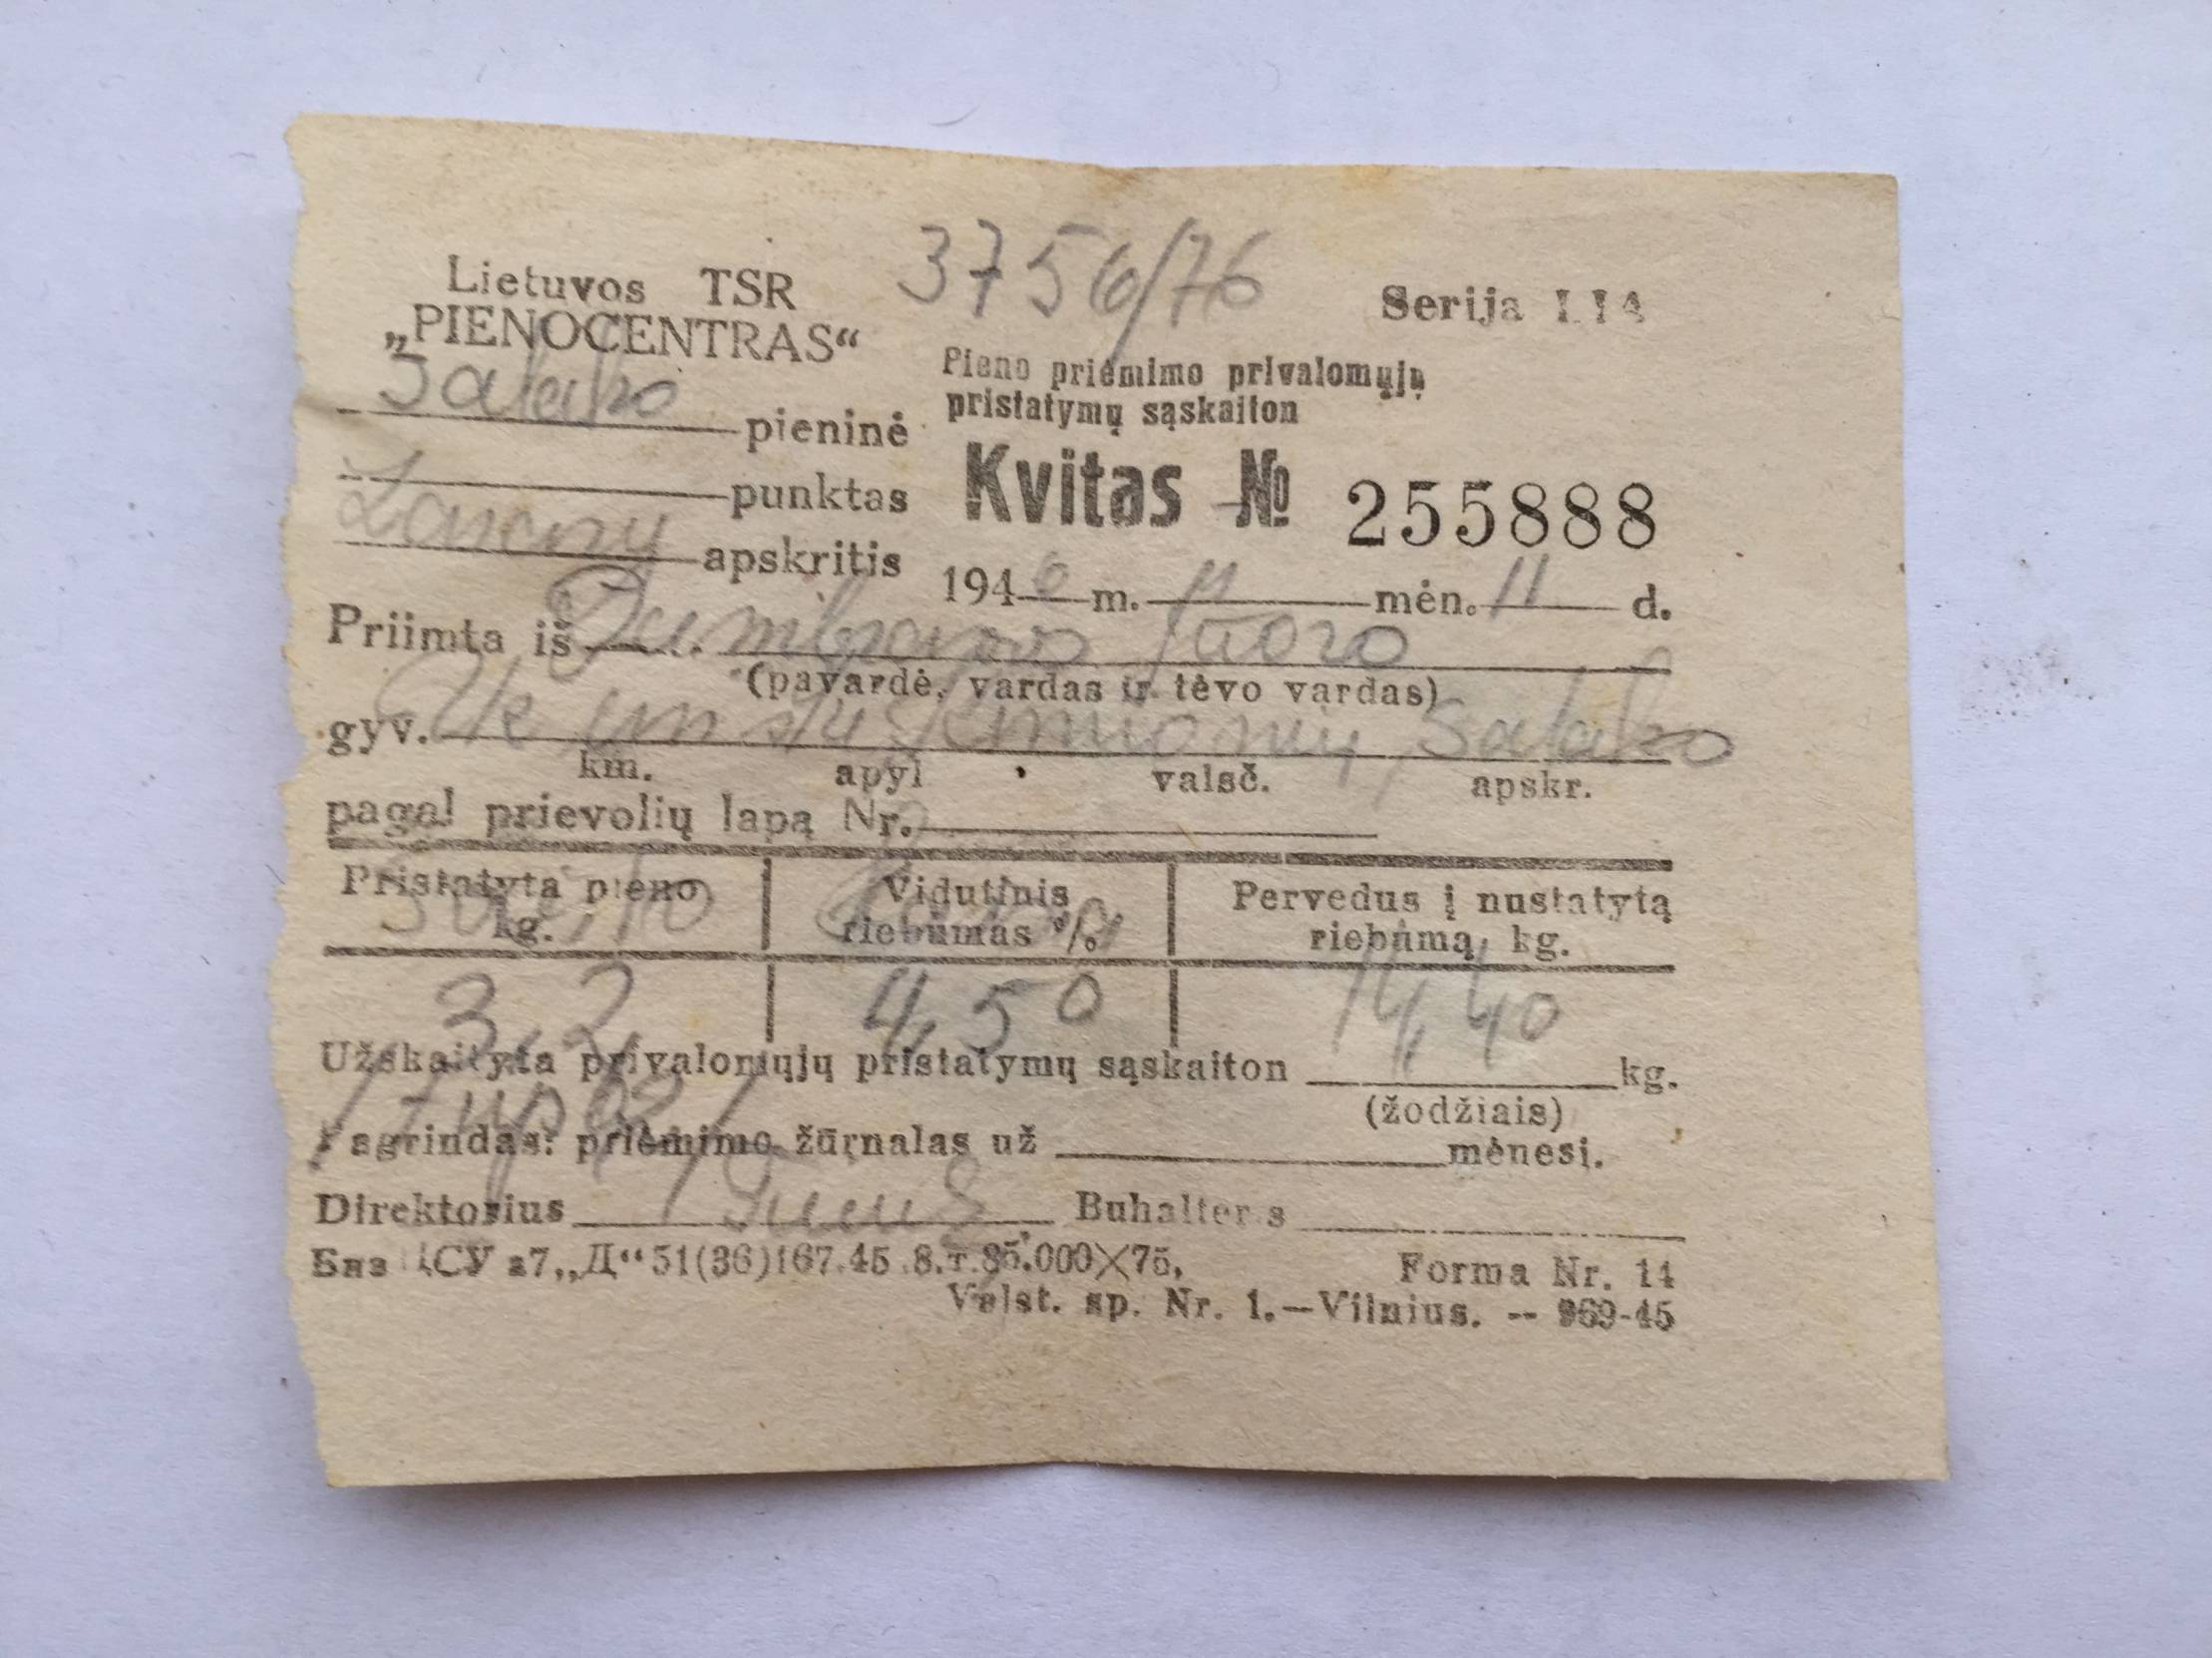 Lietuvos TSR
„PIENOCENTRAS“
3756/76
Serija
Salako pieninė
Pieno priėmimo privalomųjų
pristatymų sąskaiton
punktas
Kvitas № 255888
Zarasų apskritis
1946 m. 11 mėn. 11 d.
Priimta iš
(pavardė, vardas ir tėvo vardas)
gyv. Salako
km. apyl. valsč. apskr.
pagal prievolių lapą Nr.
Pristatyta pieno kg.
Vidutinis riebumas %
Pervedus į nustatytą riebumą, kg.
3,2 4,50 14,40
Užskaityta privalomųjų pristatymų sąskaiton kg.
(žodžiais)
Pagrindas: priėmimo žūrnalas už mėnesį.
Direktorius Buhalteris
ЦСУ 27,„Д“ 51(36)167.45 8.т.85.000×75,
Forma Nr. 14
Valst. sp. Nr. 1.—Vilnius. -- 969-45